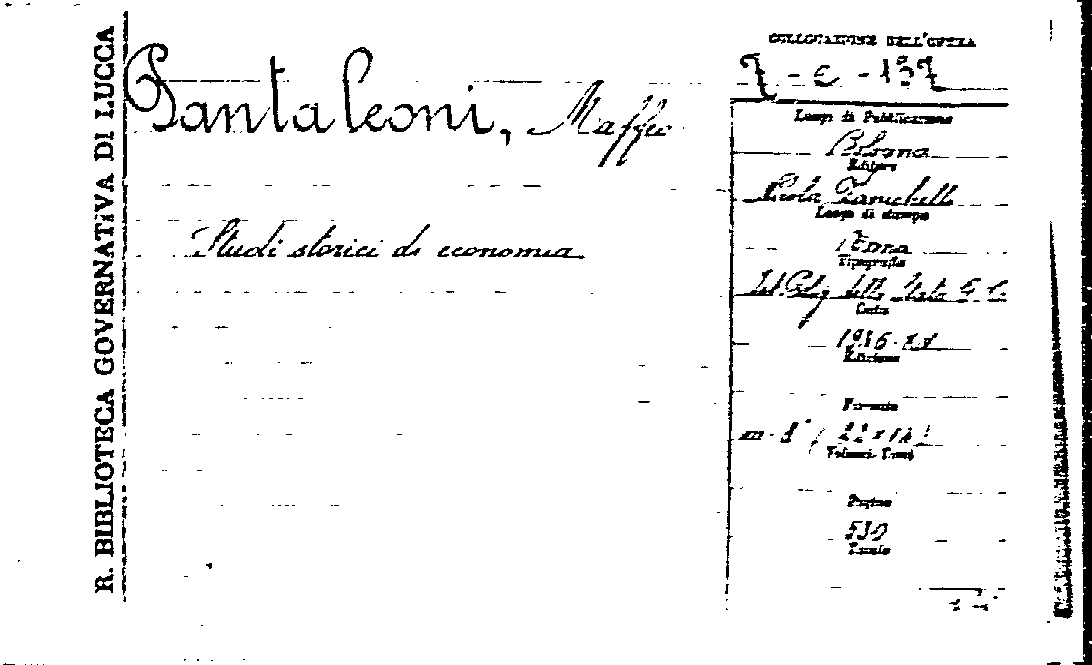 R. BIBLIOTECA GOVERNATIVA DI LUCCA
Pantaleoni, Maffeo
Studi storici di economia
COLLOCAZIONE DELL'OPERA
7-c-137
Luogo di Pubblicazione
Bologna
Editore
Nicola Zanichelli
Luogo di stampa
Roma
Tipografia
Ist. Polig. dello Stato G. C.
Data
1936-XV
Edizione
Formato
m-8° (22x14)
Volumi-Tomi
Pagine
530
Tavole